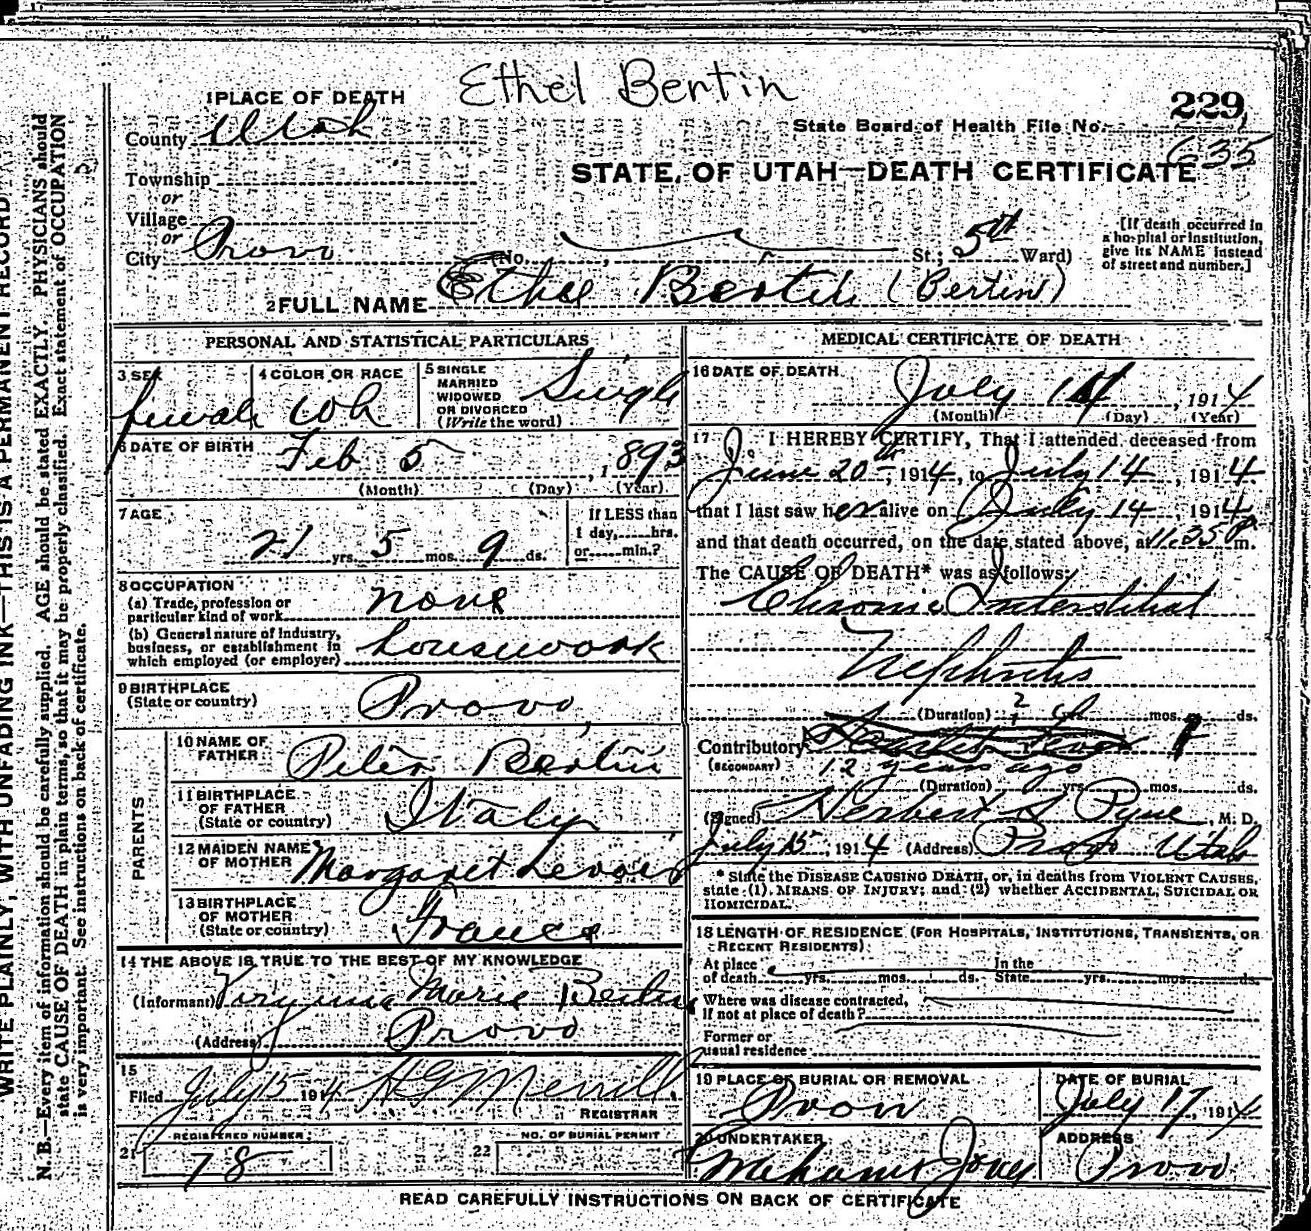 Ethel Bertin
1 PLACE OF DEATH
229
County Utah
State Board of Health File No. 635
STATE OF UTAH—DEATH CERTIFICATE
Township
or
Village
or
City Provo
(No. , St.; 5th Ward)
[If death occurred in
a hospital or institution,
give its NAME instead
of street and number.]
2 FULL NAME Ethel Bertin (Bertin)
PERSONAL AND STATISTICAL PARTICULARS
3 SEX female
4 COLOR OR RACE Wh
5 SINGLE
MARRIED
WIDOWED
OR DIVORCED
(Write the word) Single
6 DATE OF BIRTH Feb 5, 1893
(Month) (Day) (Year)
7 AGE
21 yrs. 5 mos. 9 ds.
If LESS than
1 day, hrs.
or min.?
8 OCCUPATION
(a) Trade, profession or
particular kind of work none
(b) General nature of industry,
business, or establishment in
which employed (or employer) housework
9 BIRTHPLACE
(State or country) Provo
PARENTS
10 NAME OF
FATHER Peter Bertin
11 BIRTHPLACE
OF FATHER
(State or country) Italy
12 MAIDEN NAME
OF MOTHER Margaret
13 BIRTHPLACE
OF MOTHER
(State or country) France
14 THE ABOVE IS TRUE TO THE BEST OF MY KNOWLEDGE
(Informant) Virginia Marie Bertin
(Address) Provo
15
Filed July 15 1914 H G Merrill
REGISTRAR
REGISTERED NUMBER
21 78
NO. OF BURIAL PERMIT
22
MEDICAL CERTIFICATE OF DEATH
16 DATE OF DEATH
July 14, 1914
(Month) (Day) (Year)
17 I HEREBY CERTIFY, That I attended deceased from
June 20th, 1914, to July 14, 1914.
that I last saw her alive on July 14, 1914
and that death occurred, on the date stated above, at 11.35 P m.
The CAUSE OF DEATH* was as follows:
Chronic Interstitial
Nephritis
(Duration) yrs. mos. ds.
Contributory Scarlet Fever
(SECONDARY) 12 years ago
(Duration) yrs. mos. ds.
(Signed) Herbert S Pyne, M. D.
July 15, 1914 (Address) Provo Utah
* State the DISEASE CAUSING DEATH, or, in deaths from VIOLENT CAUSES,
state (1) MEANS OF INJURY; and (2) whether ACCIDENTAL, SUICIDAL OR
HOMICIDAL.
18 LENGTH OF RESIDENCE (FOR HOSPITALS, INSTITUTIONS, TRANSIENTS, OR
RECENT RESIDENTS)
At place In the
of death yrs. mos. ds. State yrs. mos. ds.
Where was disease contracted,
If not at place of death?
Former or
usual residence
19 PLACE OF BURIAL OR REMOVAL
Provo
DATE OF BURIAL
July 17, 1914
20 UNDERTAKER
ADDRESS
Provo
READ CAREFULLY INSTRUCTIONS ON BACK OF CERTIFICATE
WRITE PLAINLY, WITH UNFADING INK—THIS IS A PERMANENT RECORD
N. B.—Every item of information should be carefully supplied. AGE should be stated EXACTLY. PHYSICIANS should
state CAUSE OF DEATH in plain terms, so that it may be properly classified. Exact statement of OCCUPATION
is very important. See instructions on back of certificate.